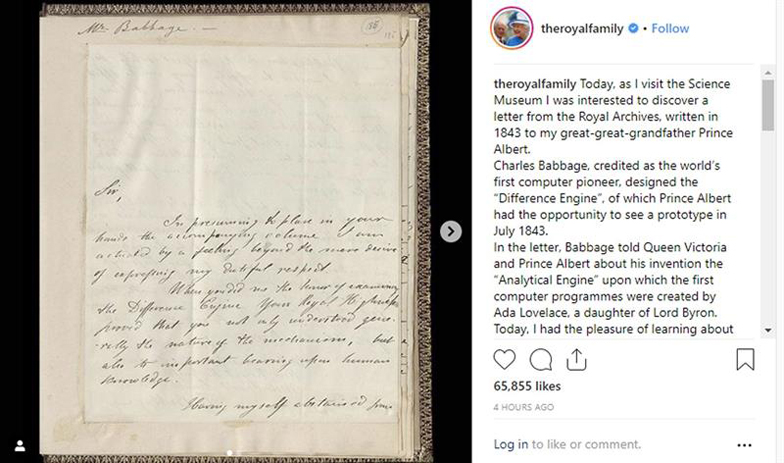 Mr. Babbage. —
Sir,
In presuming to place in your
hands the accompanying volume I am
actuated by a feeling beyond the mere desire
of expressing my dutiful respect
When you did me the honor of examining
the Difference Engine Your Royal Highness
proved that you not only understood gene-
-rally the nature of the mechanism, but
also its important bearing upon human
knowledge.
Having myself abstained from
theroyalfamily • Follow
theroyalfamily Today, as I visit the Science
Museum I was interested to discover a
letter from the Royal Archives, written in
1843 to my great-great-grandfather Prince
Albert.
Charles Babbage, credited as the world's
first computer pioneer, designed the
"Difference Engine", of which Prince Albert
had the opportunity to see a prototype in
July 1843.
In the letter, Babbage told Queen Victoria
and Prince Albert about his invention the
"Analytical Engine" upon which the first
computer programmes were created by
Ada Lovelace, a daughter of Lord Byron.
Today, I had the pleasure of learning about
65,855 likes
4 HOURS AGO
Log in to like or comment.